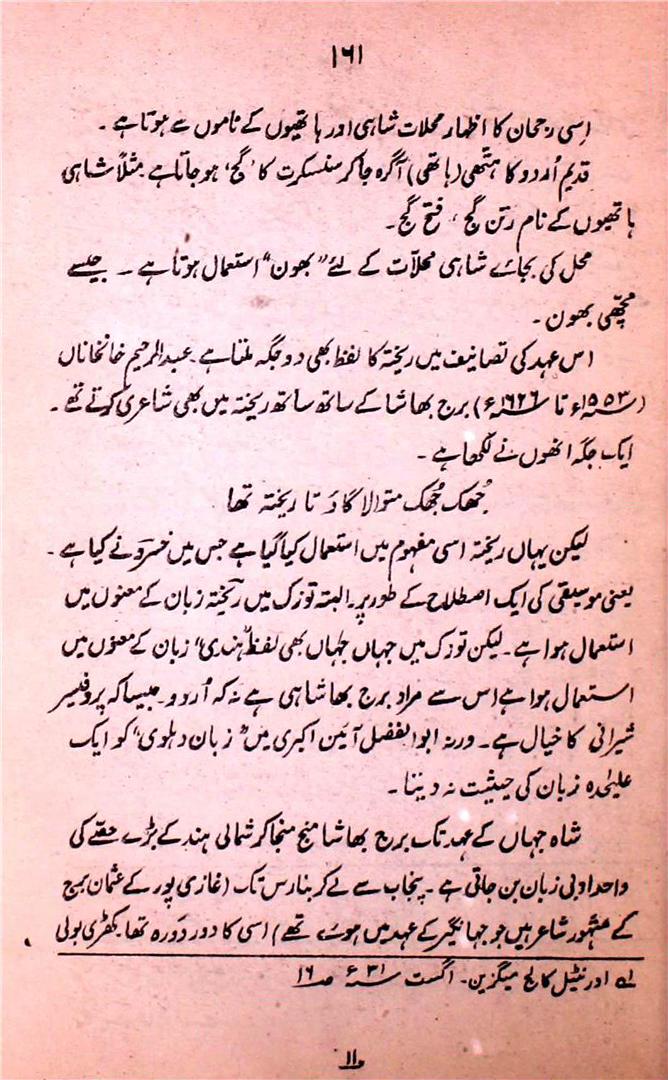 ۱۶۱
اِسی رجحان کا اظہار محلات شاہی اور ہاتھیوں کے ناموں سے ہوتا ہے ۔
قدیم اُردو کا ہتّھی (ہاتھی) آگرہ جاکر سنسکرت کا ’گج‘ ہو جاتا ہے مثلاً شاہی
ہاتھیوں کے نام رتن گج ، فتح گج ۔
محل کی بجائے شاہی محلّات کے لئے ”بھون“ استعمال ہوتا ہے ۔ جیسے
مچّھی بھون ۔
اس عہد کی تصانیف میں ریختہ کا لفظ بھی دو جگہ ملتا ہے ۔ عبدالرحیم خانخاناں
(۱۵۵۳ء تا ۱۶۲۶ء) برج بھاشا کے ساتھ ساتھ ریختہ میں بھی شاعری کرتے تھے ۔
ایک جگہ انھوں نے لکھا ہے ۔
جُھک جُھک متوالا گاوَتا ریختہ تھا
لیکن یہاں ریختہ اسی مفہوم میں استعمال کیا گیا ہے جس میں خسرو نے کیا ہے ۔
یعنی موسیقی کی ایک اصطلاح کے طور پر ۔ البتہ توزک میں ریختہ زبان کے معنوں میں
استعمال ہوا ہے ۔ لیکن توزک میں جہاں جہاں بھی لفظ ”ہندی“ زبان کے معنوں میں
استعمال ہوا ہے اس سے مراد برج بھاشا ہی ہے نہ کہ اُردو ۔ جیسا کہ پروفیسر
شیرانی کا خیال ہے ۔ ورنہ ابوالفضل آئین اکبری میں ”زبان دہلوی“ کو ایک
علیٰحدہ زبان کی حیثیت نہ دیتا ۔
شاہ جہاں کے عہد تک برج بھاشا منج منجا کر شمالی ہند کے بڑے حصّے کی
واحد ادبی زبان بن جاتی ہے ۔ پنجاب سے لے کر بنارس تک (غازی پور کے عثمان برج
کے مشہور شاعر ہیں جو جہانگیر کے عہد میں ہوئے تھے) اسی کا دور دَورہ تھا ۔ کھڑی بولی
لہ اورنٹیل کالج میگزین ۔ اگست ۳۱ء ص ۱۶
۱۱